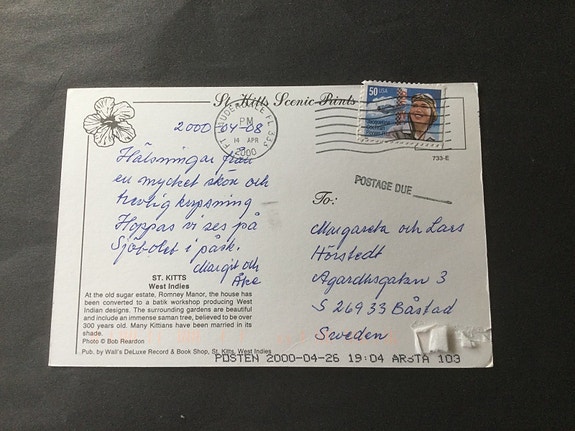 St. Kitts Scenic Prints
FT LAUDERDALE FL 333
PM
14 APR
2000
50 USA
Jacqueline
Cochran
Pioneer Pilot
733-E
POSTAGE DUE
2000-04-08
Hälsningar från
en mycket skön och
trevlig kryssning
Hoppas vi ses på
Sjöbolet i påsk.
Margit och
Åke
ST. KITTS
West Indies
At the old sugar estate, Romney Manor, the house has
been converted to a batik workshop producing West
Indian designs. The surrounding gardens are beautiful
and include an immense saman tree, believed to be over
300 years old. Many Kittians have been married in its
shade.
Photo © Bob Reardon
Pub. by Wall's DeLuxe Record & Book Shop, St. Kitts, West Indies
To:
Margareta och Lars
Hörstedt
Agardhsgatan 3
S 26933 Båstad
Sweden
POSTEN 2000-04-26 19:04 ÅRSTA 103